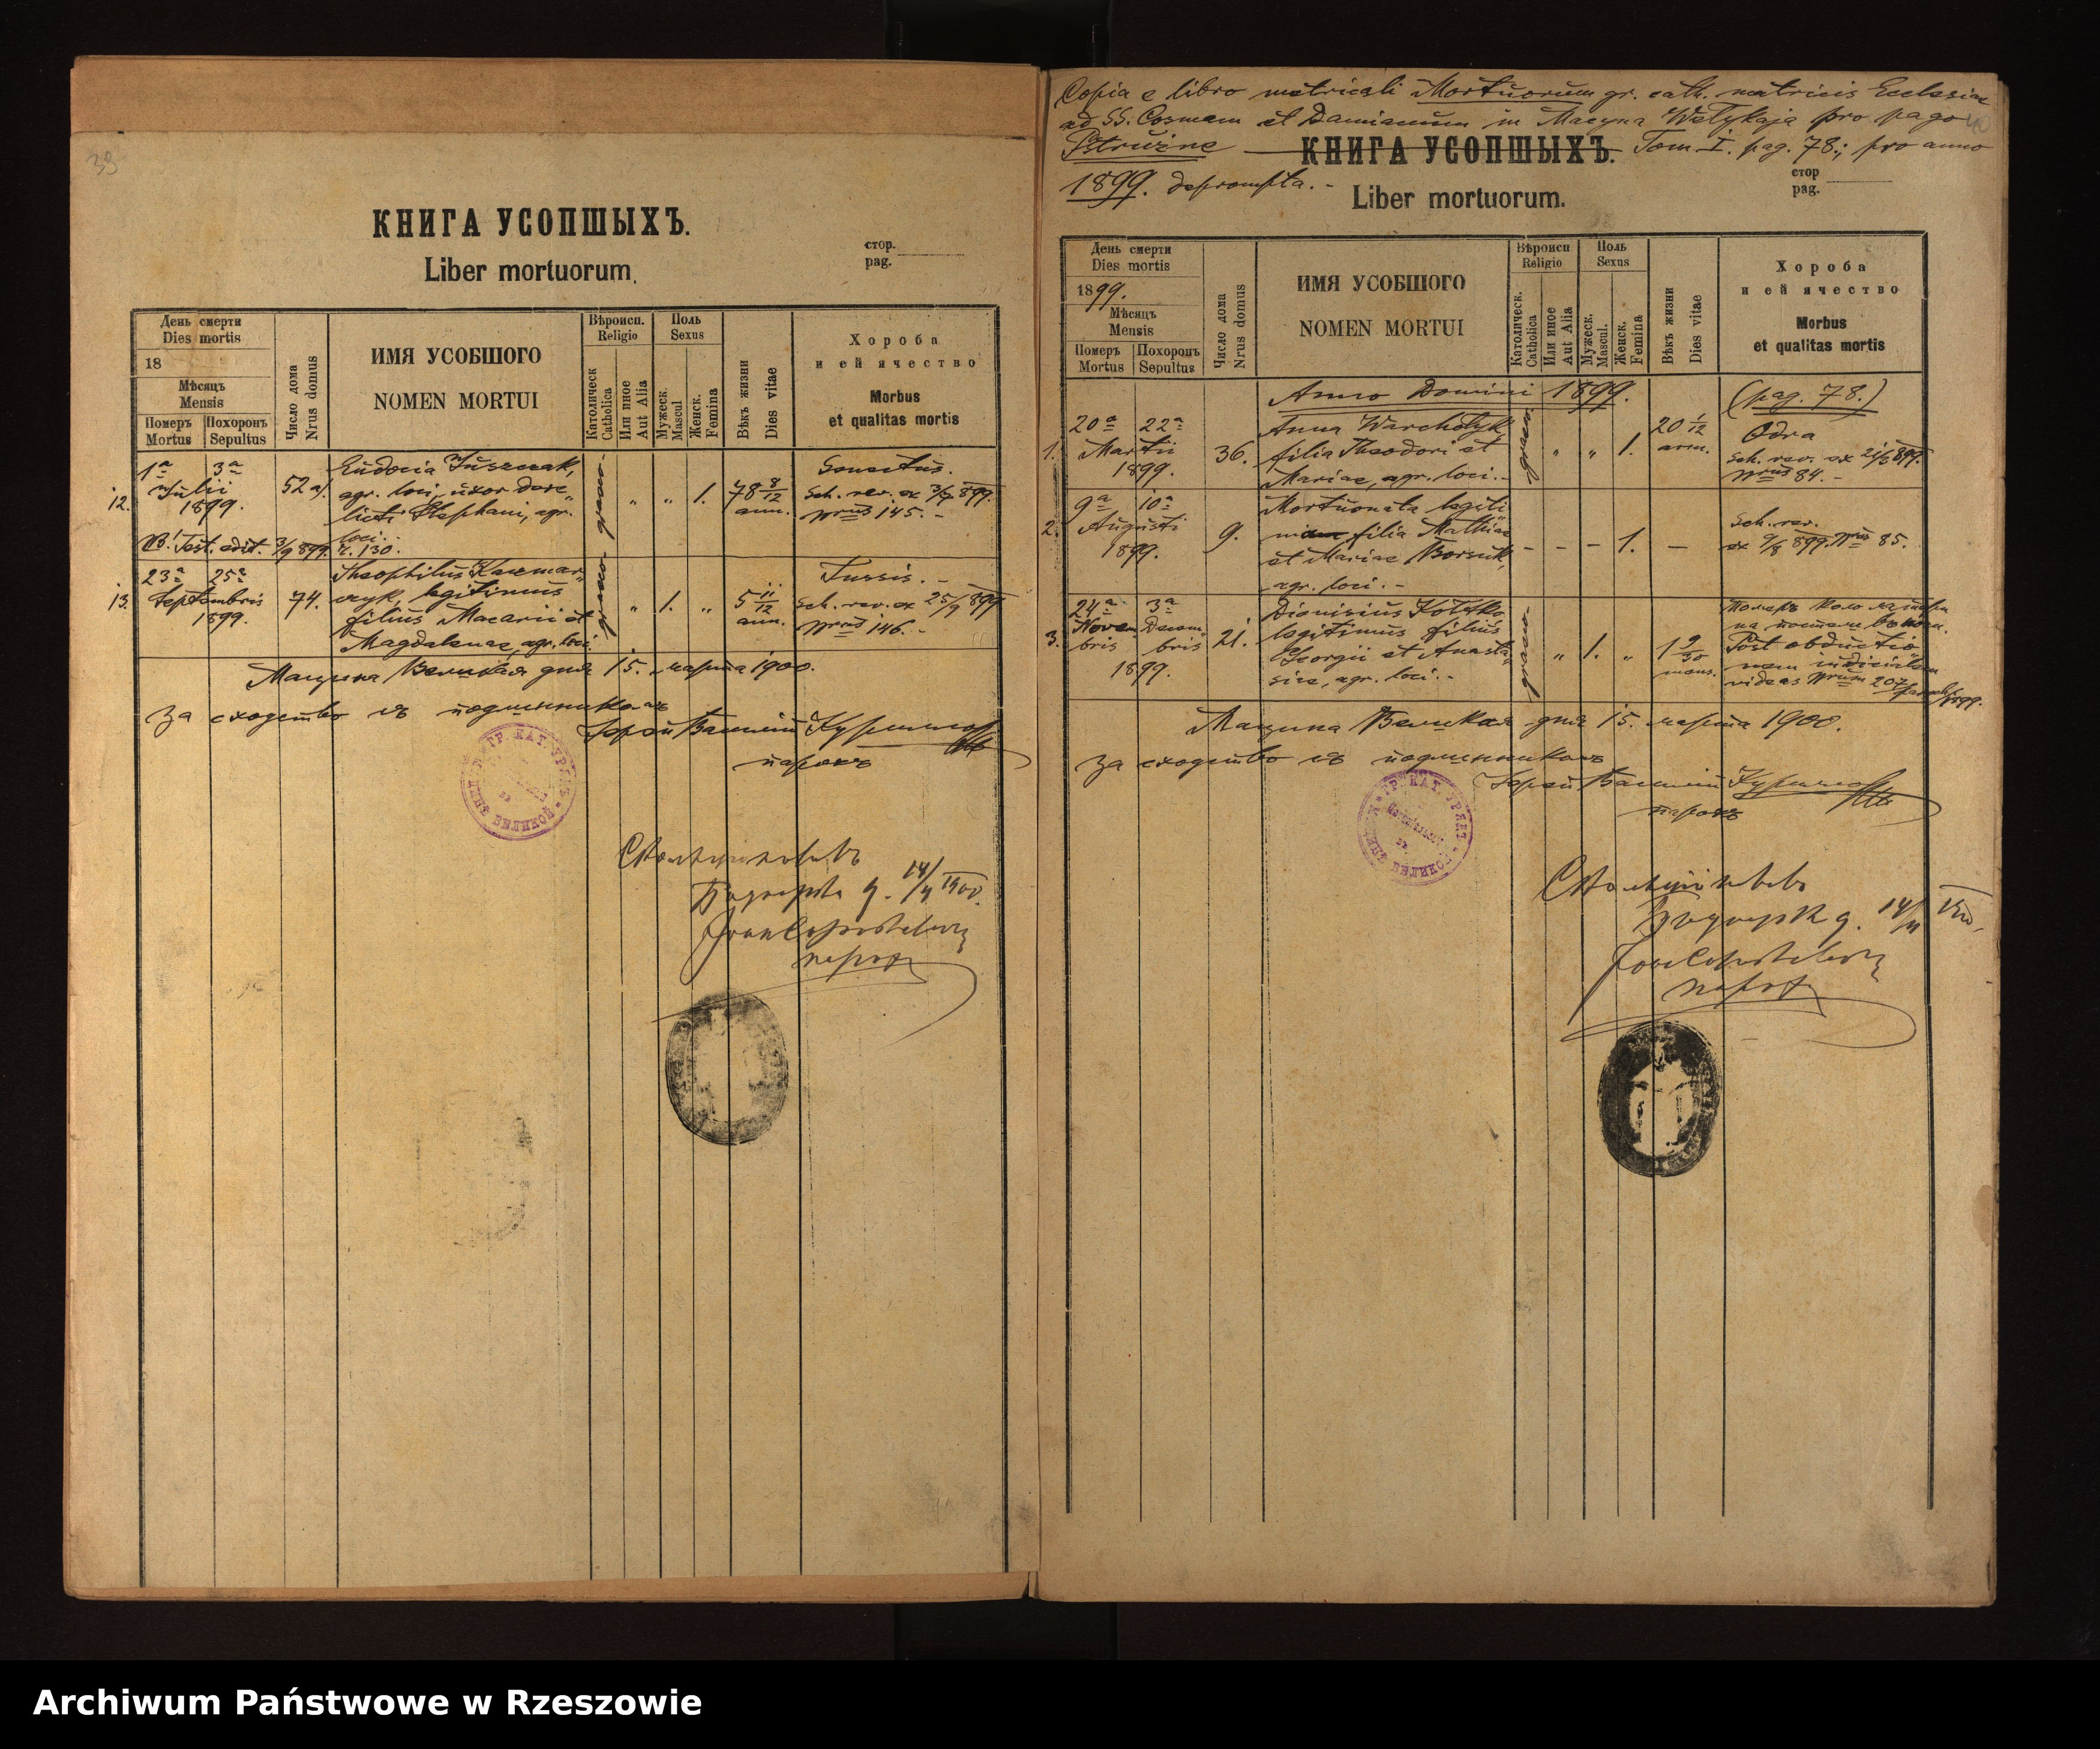 39
КНИГА УСОПШЫХЪ.
Liber mortuorum.
стор.
pag.
День смерти
Dies mortis
18
Мѣсяцъ
Mensis
Померъ
Mortus
Похоронъ
Sepultus
Число дома
Nrus domus
ИМЯ УСОБШОГО
NOMEN MORTUI
Вѣроисп.
Religio
Католическ
Catholica
Или иное
Aut Alia
Поль
Sexus
Мужеск.
Mascul
Женск.
Femina
Вѣкъ жизни
Dies vitae
Хороба
и ей ячество
Morbus
et qualitas mortis
12.
1ª 3ª
Julii
1899.
52 a/.
Eudocia Juszczak,
agr. loci, uxor dere„
licti Stephani, agr.
loci.
graeco-
„ „ 1.
78 8/12
ann.
Senectus.
Sch. rev. ex 3/7 899.
Nrus 145. -
NB! Test. edit. 3/9 899. r. 130.
13.
23ª 25ª
Septembris
1899.
74.
Theophilus Kaczmar„
czyk, legitimus
filius Macarii et
Magdalenae, agr. loci.
graeco
„ 1. „
5 11/12
ann.
Tussis. -
Sch. rev. ex 25/9 899
Nrus 146. -
Мацина Великая дня 15. марта 1900.
За сходство съ подлинникомъ
Іерей Василій
парохъ
14/4 1900.
парох
Copia e libro metricali Mortuorum gr. cath. matricis Ecclesiae
ad SS. Cosmam et Damianum in Macyna Wełykaja pro pago
Pstrużne
КНИГА УСОПШЫХЪ.
Tom. I. pag. 78.; pro anno
1899. deprompta. -
Liber mortuorum.
стор
pag.
День смерти
Dies mortis
1899.
Мѣсяцъ
Mensis
Померъ
Mortus
Похоронъ
Sepultus
Число дома
Nrus domus
ИМЯ УСОБШОГО
NOMEN MORTUI
Вѣроисп
Religio
Католическ.
Catholica
Или иное
Aut Alia
Поль
Sexus
Мужеск.
Mascul.
Женск.
Femina
Вѣкъ жизни
Dies vitae
Хороба
и ей ячество
Morbus
et qualitas mortis
Anno Domini 1899.
(pag. 78.)
1.
20ª 22ª
Martii
1899.
36.
Anna Warchołyk
filia Theodori et
Mariae, agr. loci. -
graeco
„ „ 1.
20 1/12
ann.
Odra
Sch. rev. ex 21/3 899.
Nrus 84. -
2.
9ª 10ª
Augusti
1899.
9.
Mortuonata legiti
ma filia Mathiae
et Mariae Borsuk,
agr. loci. -
- - - 1. -
Sch. rev.
ex 9/8 899. Nrus 85.
3.
24ª 3ª
Novem Decem
bris bris
1899.
21.
Dionisius Kotełko
legitimus filius
Georgii et Anasta„
siae, agr. loci. -
graeco-
„ 1. „
1 9/30
mens.
Померъ коло матери
на постели въ ночи.
Post obductio„
nem iudicialem
videas Nrum 207
Мацина Великая дня 15. марта 1900.
За сходство съ подлинникомъ
Іерей Василій
парохъ
парох
Archiwum Państwowe w Rzeszowie